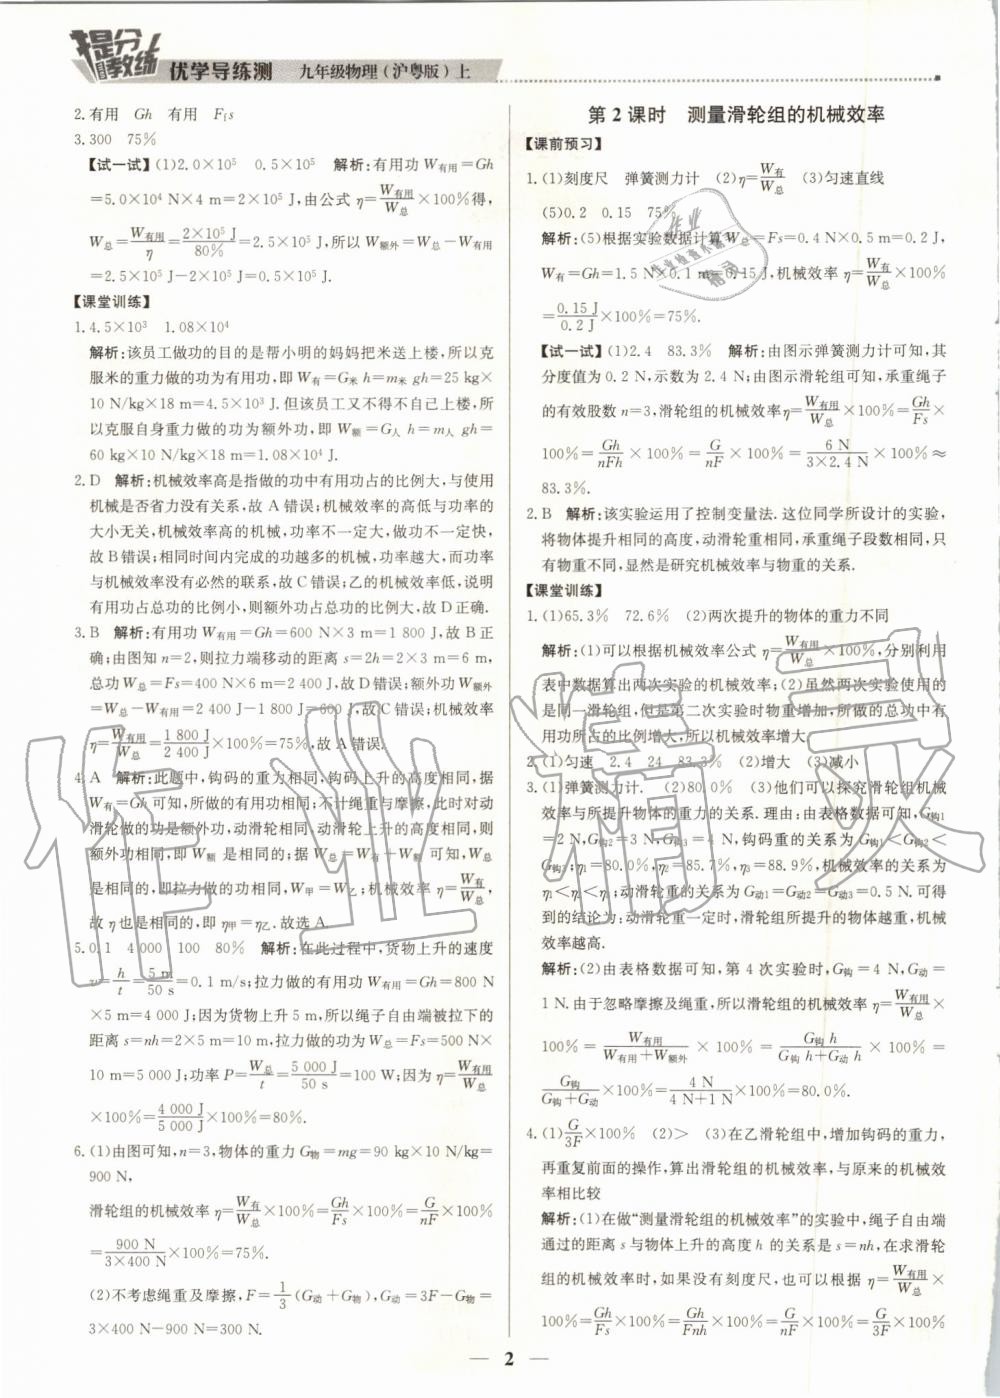 提分教练 优学导练测 九年级物理(沪粤版)上
2.有用 Gh 有用 Ffs
3.300 75%
【试一试】(1)2.0×10⁵ 0.5×10⁵ 解析:有用功W有用=Gh
=5.0×10⁴ N×4 m=2×10⁵ J,由公式 η=W有用/W总×100%得,
W总=W有用/η=2×10⁵ J/80%=2.5×10⁵ J,所以W额外=W总-W有用
=2.5×10⁵ J-2×10⁵ J=0.5×10⁵ J.
【课堂训练】
1.4.5×10³ 1.08×10⁴
解析:该员工做功的目的是帮小明的妈妈把米送上楼,所以克
服米的重力做的功为有用功,即W有=G米 h=m米 gh=25 kg×
10 N/kg×18 m=4.5×10³ J.但该员工又不得不自己上楼,所
以克服自身重力做的功为额外功,即W额=G人 h=m人 gh=
60 kg×10 N/kg×18 m=1.08×10⁴ J.
2.D 解析:机械效率高是指做的功中有用功占的比例大,与使用
机械是否省力没有关系,故A错误;机械效率的高低与功率的
大小无关,机械效率高的机械,功率不一定大,做功不一定快,
故B错误;相同时间内完成的功越多的机械,功率越大,而功率
与机械效率没有必然的联系,故C错误;乙的机械效率低,说明
有用功占总功的比例小,则额外功占总功的比例大,故D正确.
3.B 解析:有用功W有用=Gh=600 N×3 m=1 800 J,故B正
确;由图知n=2,则拉力端移动的距离s=2h=2×3 m=6 m,
总功W总=Fs=400 N×6 m=2 400 J,故D错误;额外功W额外
=W总-W有用=2 400 J-1 800 J=600 J,故C错误;机械效率
η=W有用/W总=1 800 J/2 400 J×100%=75%,故A错误.
4.A 解析:此题中,钩码的重为相同,钩码上升的高度相同,据
W有=Gh可知,所做的有用功相同;不计绳重与摩擦,此时对动
滑轮做的功是额外功,动滑轮相同、动滑轮上升的高度相同,则
额外功相同,即W额 是相同的;据W总=W有+W额 可知,W总
是相同的,即拉力做的功相同,W甲=W乙;机械效率 η=W有/W总,
故η也是相同的,即η甲=η乙.故选A.
5.0.1 4 000 100 80% 解析:在此过程中,货物上升的速度
v=h/t=5 m/50 s=0.1 m/s;拉力做的有用功W有用=Gh=800 N
×5 m=4 000 J;因为货物上升5 m,所以绳子自由端被拉下的
距离s=nh=2×5 m=10 m,拉力做的功为W总=Fs=500 N×
10 m=5 000 J;功率P=W总/t=5 000 J/50 s=100 W;因为η=W有用/W总
×100%=4 000 J/5 000 J×100%=80%.
6.(1)由图可知,n=3,物体的重力G物=mg=90 kg×10 N/kg=
900 N,
滑轮组的机械效率η=W有/W总×100%=Gh/Fs×100%=G/nF×100%
=900 N/3×400 N×100%=75%.
(2)不考虑绳重及摩擦,F=1/3(G动+G物),G动=3F-G物=
3×400 N-900 N=300 N.
第2课时 测量滑轮组的机械效率
【课前预习】
1.(1)刻度尺 弹簧测力计 (2)η=W有/W总 (3)匀速直线
(5)0.2 0.15 75%
解析:(5)根据实验数据计算W总=Fs=0.4 N×0.5 m=0.2 J,
W有=Gh=1.5 N×0.1 m=0.15 J,机械效率 η=W有/W总×100%
=0.15 J/0.2 J×100%=75%.
【试一试】(1)2.4 83.3% 解析:由图示弹簧测力计可知,其
分度值为0.2 N,示数为2.4 N;由图示滑轮组可知,承重绳子
的有效股数n=3,滑轮组的机械效率η=W有用/W总×100%=Gh/Fs×
100%=Gh/nFh×100%=G/nF×100%=6 N/3×2.4 N×100%≈
83.3%.
2.B 解析:该实验运用了控制变量法.这位同学所设计的实验,
将物体提升相同的高度,动滑轮重相同,承重绳子段数相同,只
有物重不同,显然是研究机械效率与物重的关系.
【课堂训练】
1.(1)65.3% 72.6% (2)两次提升的物体的重力不同
解析:(1)可以根据机械效率公式η=W有用/W总×100%,分别利用
表中数据算出两次实验的机械效率;(2)虽然两次实验使用的
是同一滑轮组,但是第二次实验时物重增加,所做的总功中有
用功所占的比例增大,所以机械效率增大.
2.(1)匀速 2.4 24 83.3% (2)增大 (3)减小
3.(1)弹簧测力计. (2)80.0% (3)他们可以探究滑轮组机械
效率与所提升物体的重力的关系.理由:由表格数据可知,G钩1
=2 N,G钩2=3 N,G钩3=4 N,钩码重的关系为G钩1<G钩2<
G钩3;η1=80.0%,η2=85.7%,η3=88.9%,机械效率的关系为
η1<η2<η3;动滑轮重的关系为G动1=G动2=G动3=0.5 N.可得
到的结论为:动滑轮重一定时,滑轮组所提升的物体越重,机械
效率越高.
解析:(2)由表格数据可知,第4次实验时,G钩=4 N,G动=
1 N.由于忽略摩擦及绳重,所以滑轮组的机械效率η=W有用/W总×
100%=W有用/W有用+W额外×100%=G钩 h/G钩 h+G动 h×100%=
G钩/G钩+G动×100%=4 N/4 N+1 N×100%=80%.
4.(1)G/3F×100% (2)> (3)在乙滑轮组中,增加钩码的重力,
再重复前面的操作,算出滑轮组的机械效率,与原来的机械效
率相比较
解析:(1)在做“测量滑轮组的机械效率”的实验中,绳子自由端
通过的距离s与物体上升的高度h的关系是s=nh,在求滑轮
组的机械效率时,如果没有刻度尺,也可以根据 η=W有用/W总×
100%=Gh/Fs×100%=Gh/Fnh×100%=G/nF×100%=G/3F×100%
— 2 —
作业精灵